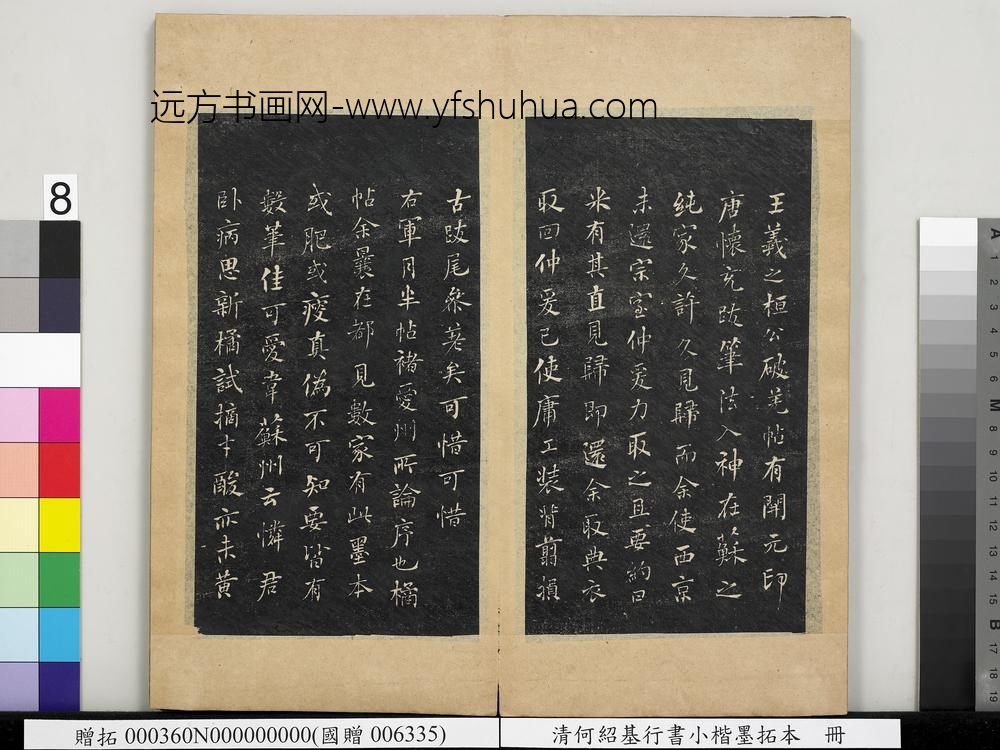 远方书画网-www.yfshuhua.com
王羲之桓公破羌帖有開元印
唐懷充跋筆法入神在蘇之
純家久許久見歸而余使西京
未還宗室仲爰力取之且要約曰
米有其直見歸即還余取典衣
取回仲爰已使庸工裝背翦損
古跋尾參差矣可惜可惜
右軍月半帖褚愛州所論序也橘
帖余曩在都見數家有此墨本
或肥或瘦真偽不可知要皆有
數筆佳可愛韋蘇州云憐君
卧病思新橘試摘才酸亦未黄
8
A 1 2 3 4 5 6 M 8 9 10 11 12 13 14 15 B 17 18 19
贈拓 000360N000000000(國贈 006335)
清何紹基行書小楷墨拓本 冊